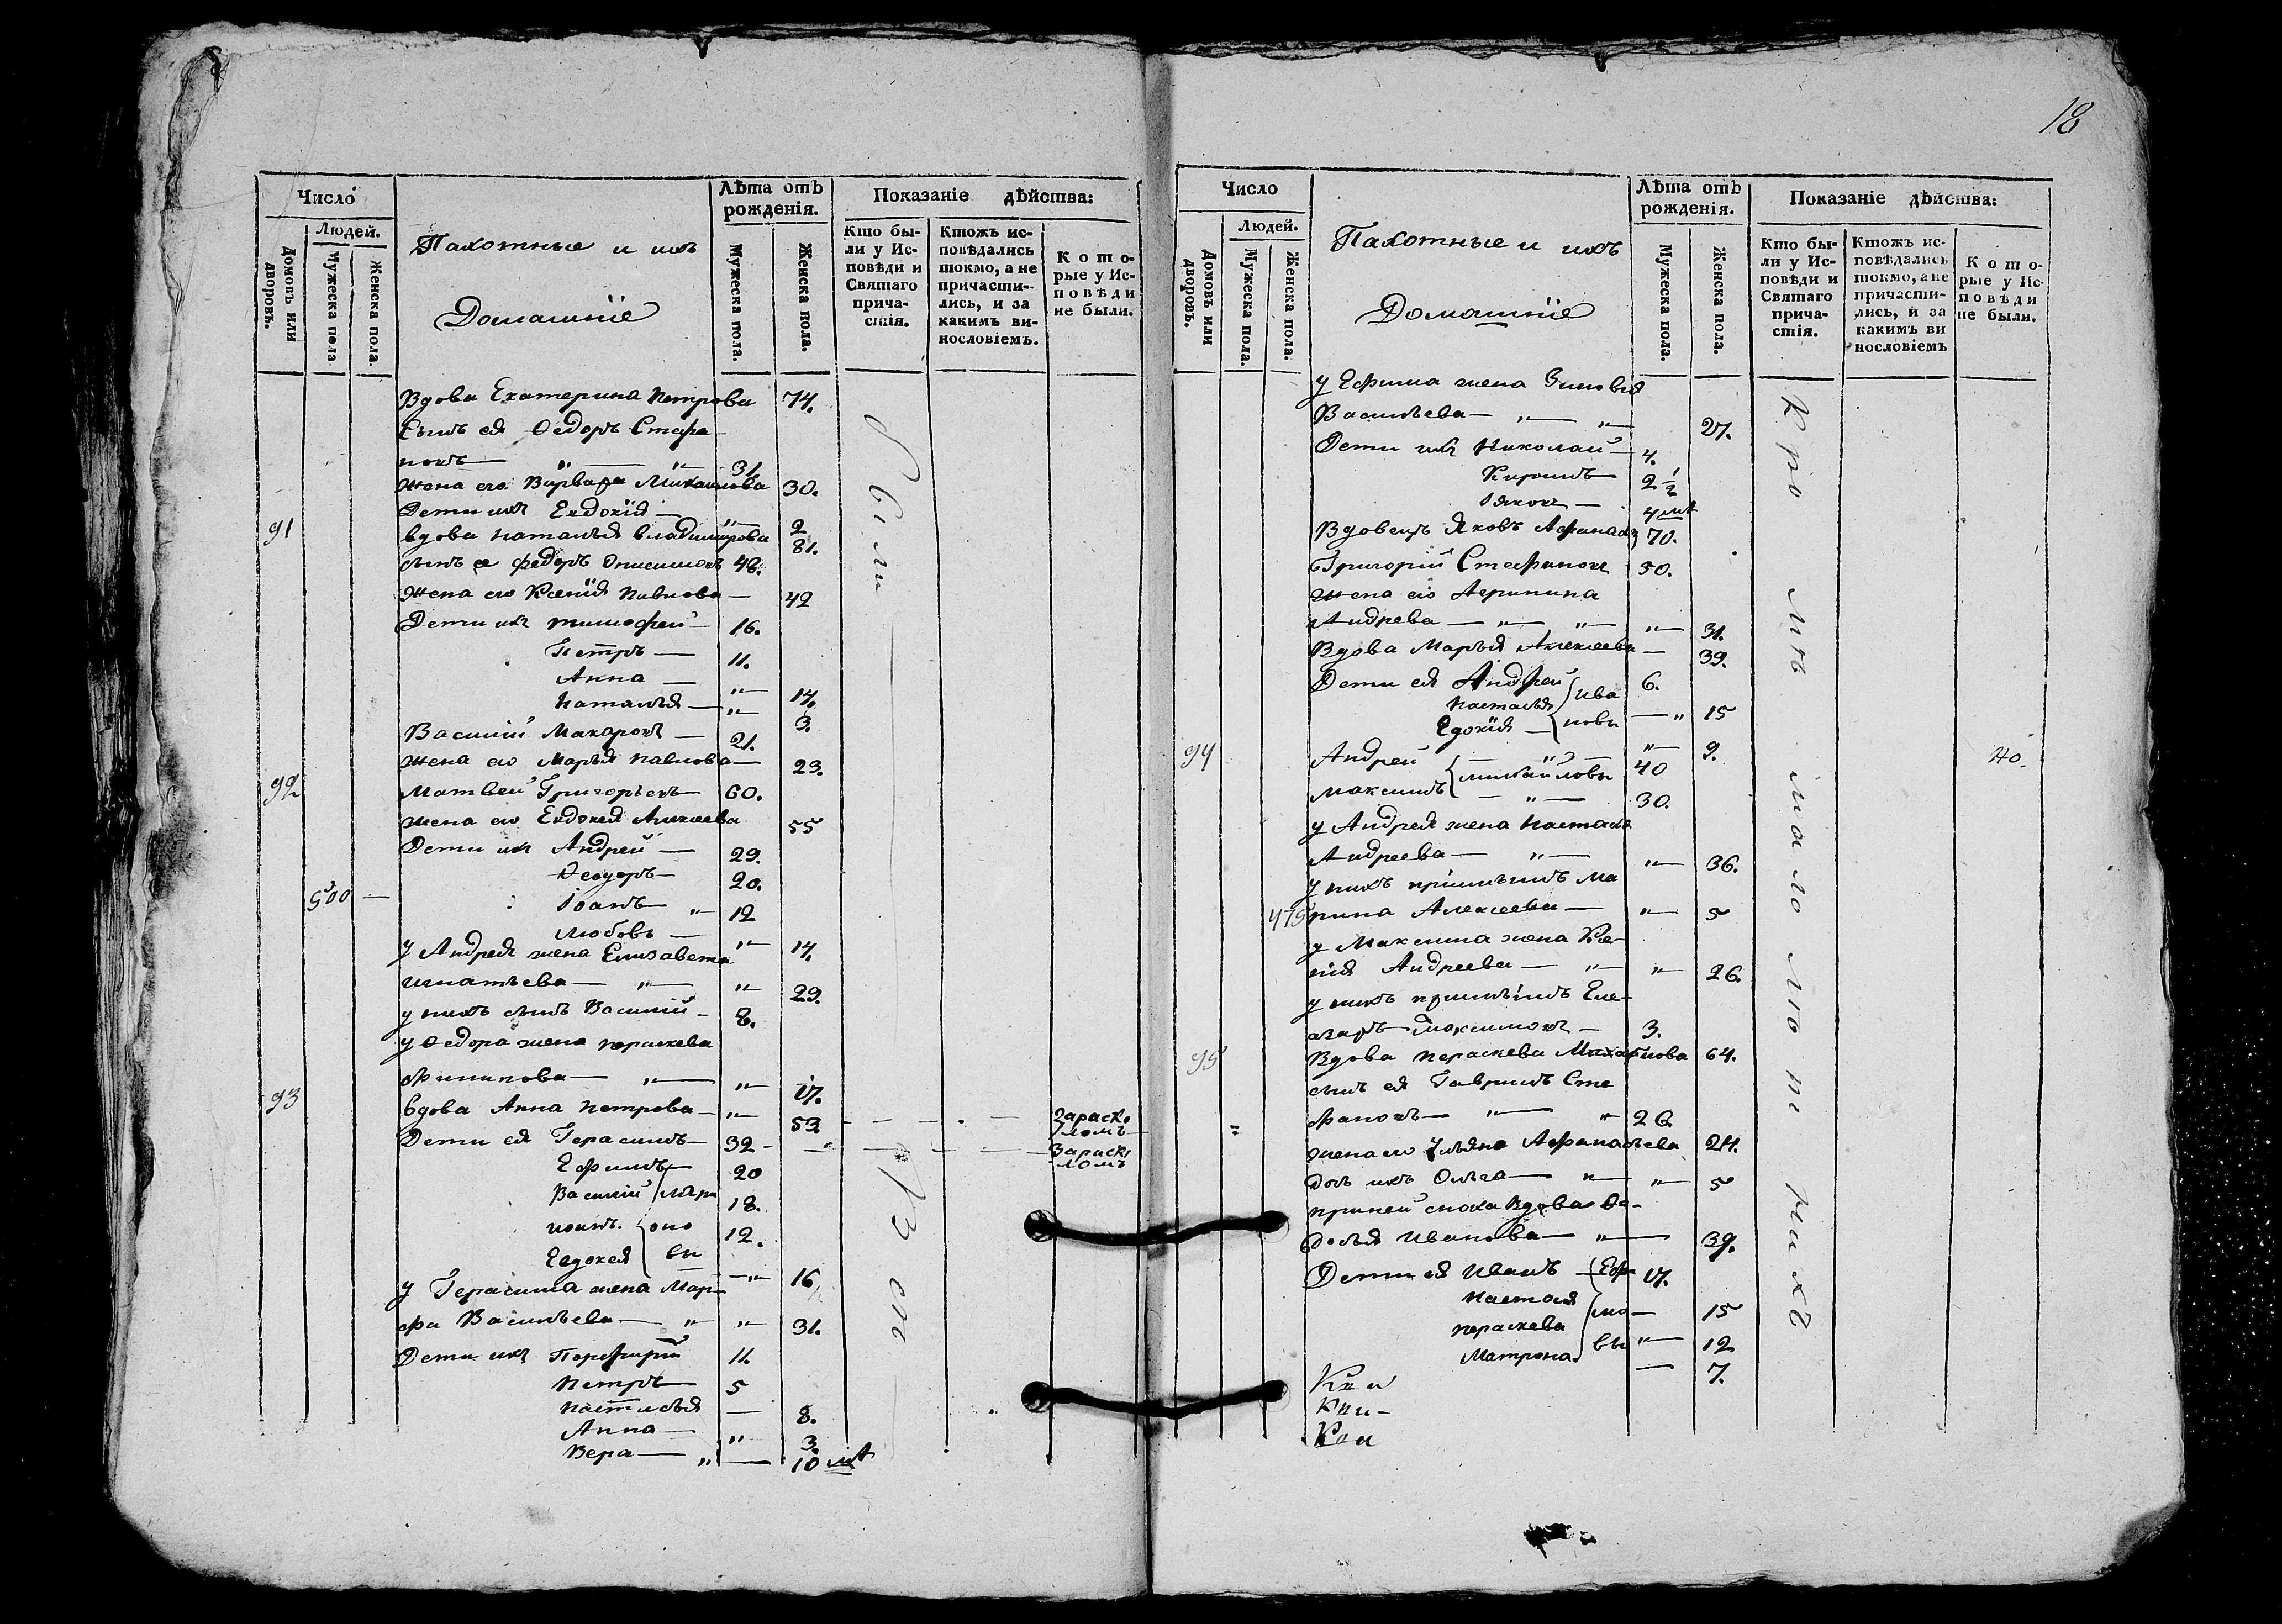 Число
Людей.
Домовъ или дворовъ.
Мужеска пола
Женска пола.
Пахотные и ихъ
Домашніе
Лѣта отъ рожденія.
Мужеска пола.
Женска пола.
Показаніе дѣйства:
Кто бы-
ли у Ис-
повѣди и
Святаго
прича-
стія.
Ктожъ ис-
повѣдались
токмо, а не
причасти-
лись, и за
какимъ ви-
нословіемъ.
Кото-
рые у Ис-
повѣди
не были.
Вдова Екатерина Петрова 74.
Сынъ ея Ѳедоръ Стефа
новъ 31.
Жена его Варвара Михаилова 30.
Дети ихъ Евдокія 2
91 вдова Наталья владимирова 81.
сынъ ее федоръ 48.
Жена его Ксенія Павлова 42
Дети ихъ тимофей 16.
Петръ 11.
Анна 14.
Наталья 3.
Василій Макаровъ 21.
Жена его Марья Павлова 23.
92 Матвей Григорьевъ 60.
Жена его Евдокея Алексеева 55
Дети ихъ Андрей 29.
Ѳеодоръ 20.
500 Іоанъ 12
Любовь 14.
у Андрея жена Елизавета
игнатьева 29.
у нихъ сынъ Василій 8.
у Ѳедора жена параскева
Филипова 17.
93 Вдова Анна Петрова 53.
Дети ея Герасимъ 32
Ефимъ 20
Василій 18.
иоанъ. 12.
Евдокея 16
у Герасима жена Мар-
фа Васильева 31.
Дети ихъ Порфирій 11.
Петръ 5
Настасья 8.
Анна 3.
Вера 10 мѣ
Были
зараско
ломъ
зараско
ломъ
18
Число
Людей.
Домовъ или дворовъ.
Мужеска пола.
Женска пола.
Пахотные и ихъ
Домашніе
Лѣта отъ рожденія.
Мужеска пола.
Женска пола.
Показаніе дѣйства:
Кто бы-
ли у Ис-
повѣди и
Святаго
прича-
стія.
Ктожъ ис-
повѣдались
токмо, а не
причасти-
лись, и за
какимъ ви
нословіемъ
Кото-
рые у Ис-
повѣди
не были.
у Ефима жена Зиновья
Васильева 27.
Дети ихъ Николай 4.
Кирилъ 2 1/2
Іяковъ 4 мѣ
Вдовецъ Яковъ Афанась 70.
Григорій Стефановъ 50.
Жена его Агрипина
Андрева 31.
Вдова Марья Алексеева 39.
Дети ея Андрей 6.
Настасья ива 15
Едокія новы 9.
94 Андрей 40
Максимъ михайловы 30.
у Андрея жена Настася
Андреева 36.
у нихъ пріимышъ Ма
475 рина Алексеева 5
у Максима жена Ксе-
нія Андреева 26.
у нихъ пріимышъ Еле-
азаръ Максимовъ 3.
95 Вдова Параскева Михайлова 64.
сынъ ея Гавриилъ Сте
Фановъ 26.
жена его Ульяна Афанасьева 24.
дочь ихъ Ольга 5
при ней сноха Вдова Ѳе-
досья Иванова 39.
Дети ея Иванъ Ефи 17.
Настася мо 15
Параскева вы 12
Матрона 7.
Кромѣ малолѣтнихъ
но.